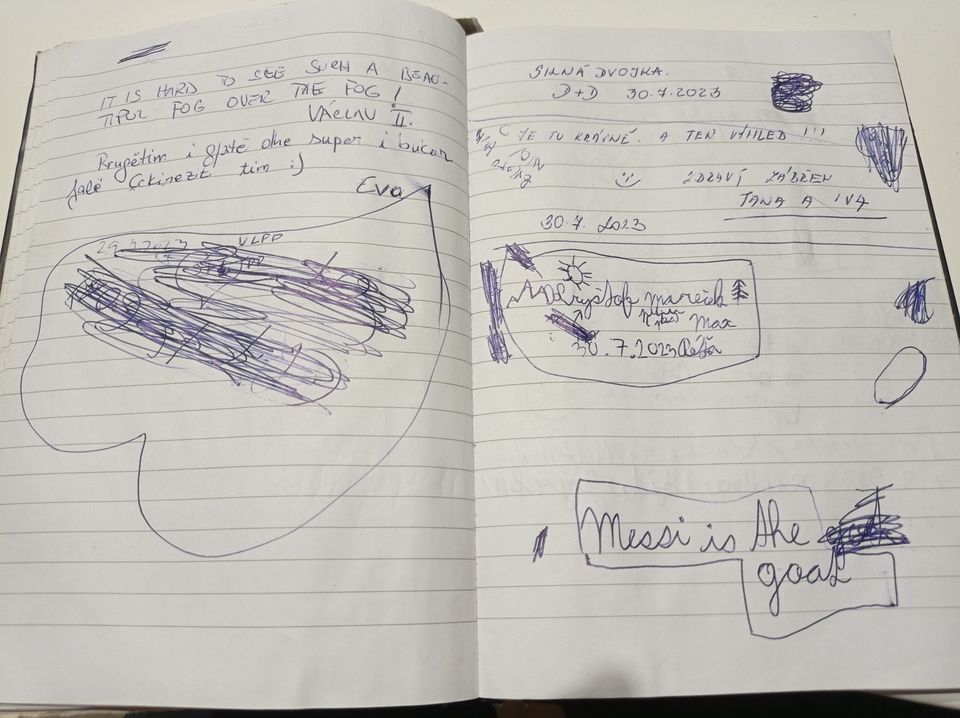 IT IS HARD TO SEE SUCH A BEAU-
TIFUL FOG OVER THE FOG!
VÁCLAV II.
Rrugëtim i gjatë dhe super i bukur
falë Çekinezit tim :)
Eva
29.7.2023 VLPP
SILNÁ DVOJKA.
D+D 30.7.2023
JE TU KRÁSNĚ. A TEN VÝHLED !!!
ZDRAVÍ ZÁBŘEH
JANA A IVA
30.7. 2023
Kryštof mareček
Max
30.7.2023 Péťa
Messi is the
goat